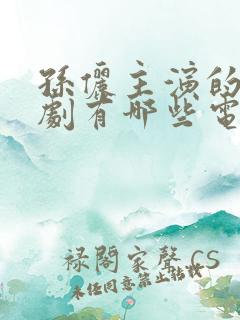 孫儷主演的
劇有哪些電
禄閣家聲 CS
未任同意禁止轉載